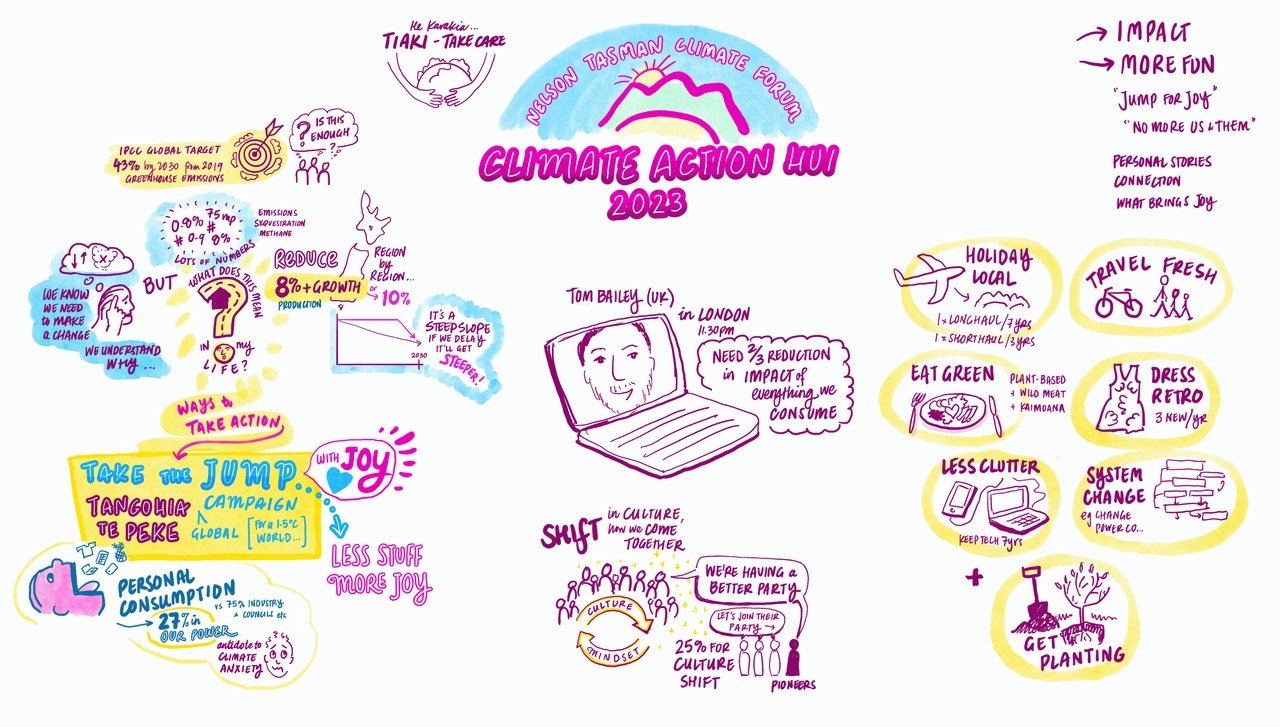 He Karakia...
TIAKI - TAKE CARE
NELSON TASMAN CLIMATE FORUM
CLIMATE ACTION HUI
2023
→ IMPACT
→ MORE FUN
"JUMP FOR JOY"
"NO MORE US & THEM"
PERSONAL STORIES
CONNECTION
WHAT BRINGS JOY
IPCC GLOBAL TARGET
43% by 2030 from 2019
GREENHOUSE EMISSIONS
IS THIS
ENOUGH
?
0.8% 75mp
#
# 0-9 8%
LOTS OF NUMBERS
EMISSIONS
SEQUESTRATION
METHANE
WE KNOW
WE NEED
to MAKE
A CHANGE
WE UNDERSTAND
WHY...
BUT
WHAT DOES THIS MEAN
IN my
LIFE?
REDUCE
8% + GROWTH
PRODUCTION
or 10%
REGION
by
REGION...
2030
IT'S A
STEEP SLOPE
IF WE DELAY
IT'LL GET
STEEPER!
WAYS to
TAKE ACTION
TAKE THE JUMP
WITH JOY
TANGOHIA
TE PEKE
CAMPAIGN
GLOBAL
[For a 1.5°C
WORLD...]
LESS STUFF
MORE JOY
PERSONAL
CONSUMPTION
vs 75% INDUSTRY
+ COUNCILS etc
→ 27% in
OUR POWER
antidote to
CLIMATE
ANXIETY
TOM BAILEY (UK)
in LONDON
11.30pm
NEED 2/3 REDUCTION
in IMPACT of
everything we
CONSUME
SHIFT
in CULTURE,
how we COME
TOGETHER
CULTURE
MINDSET
WE'RE HAVING a
BETTER PARTY
LET'S JOIN THEIR
PARTY →
25% FOR
CULTURE
SHIFT
PIONEERS
HOLIDAY
LOCAL
1 x LONGHAUL/7yrs
1 x SHORTHAUL/3yrs
TRAVEL FRESH
EAT GREEN
PLANT-BASED
+ WILD MEAT
+ KAIMOANA
DRESS
RETRO
3 NEW/yr
LESS CLUTTER
KEEP TECH 7yrs
SYSTEM
CHANGE
eg CHANGE
POWER CO...
+
GET
PLANTING